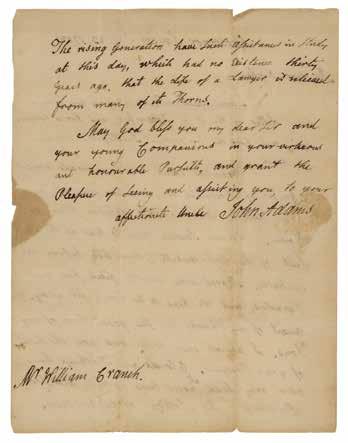 The rising Generation have such assistances in Study
at this day, which had no Existence thirty
years ago, that the Life of a Lawyer is released
from many of its Thorns.
May God bless you my dear Sir and
your young Companions in your virtuous
and honourable Pursuits, and grant the
Pleasure of Seeing and assisting you, to your
affectionate Uncle John Adams
Mr. William Cranch.